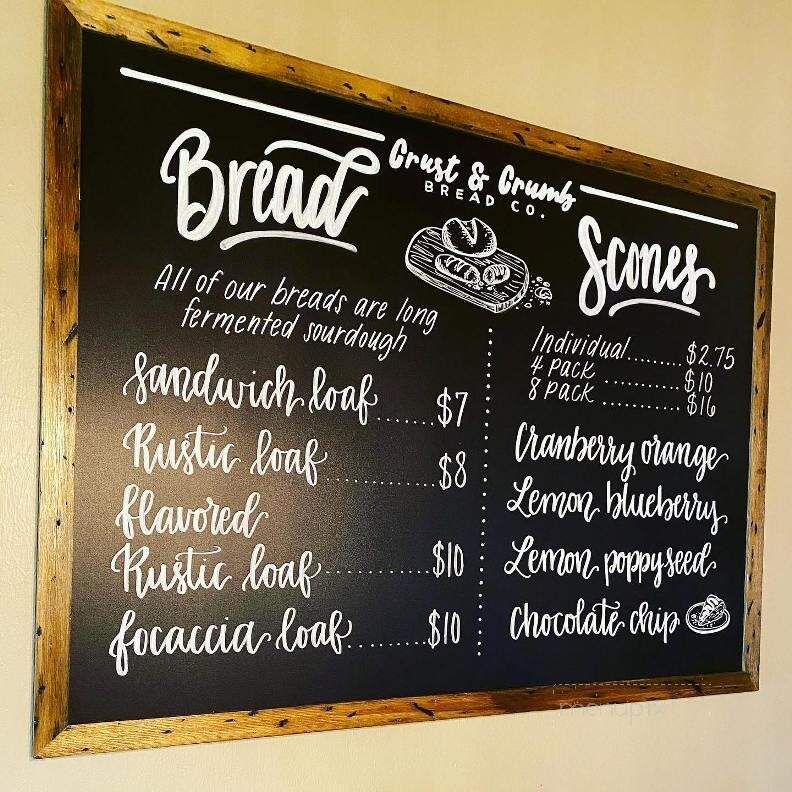 Crust & Crumb
BREAD CO.
Bread
All of our breads are long
fermented sourdough
Sandwich loaf.......$7
Rustic loaf..............$8
flavored
Rustic loaf..............$10
focaccia loaf..........$10
Scones
Individual.......$2.75
4 Pack..........$10
8 Pack..........$16
Cranberry orange
Lemon blueberry
Lemon poppyseed
Chocolate chip
menapix